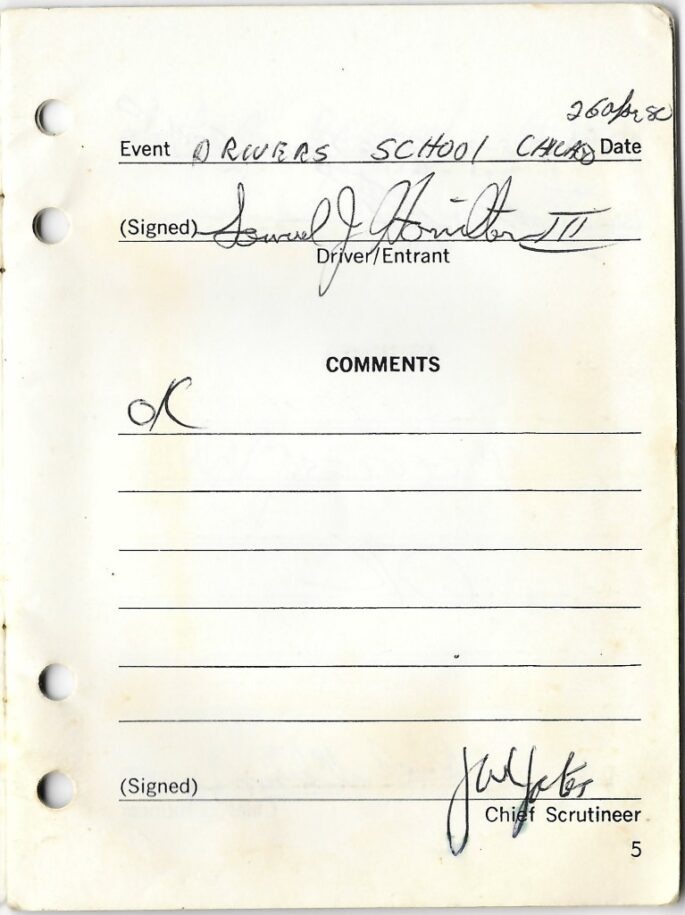 26 Apr 80
Event DRIVERS SCHOOL Date
(Signed) Samuel J. Hamilton III
Driver/Entrant
COMMENTS
OK
(Signed) J W Yates
Chief Scrutineer
5